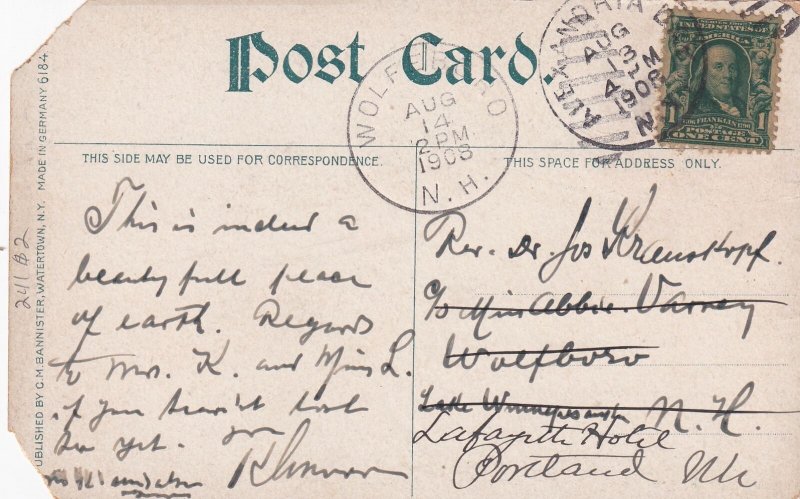 Post Card.
THIS SIDE MAY BE USED FOR CORRESPONDENCE.
THIS SPACE FOR ADDRESS ONLY.
UBLISHED BY C.M. BANNISTER, WATERTOWN, N.Y. MADE IN GERMANY 6184
WOLFEBORO
AUG
14
2 PM
1908
N. H.
ALEXANDRIA BAY
AUG
13
1908
N.Y.
UNITED STATES OF
AMERICA
1 FRANKLIN 1
POSTAGE
ONE CENT
This is indeed a
beautyfull peace
of earth. Regards
to Mrs. K. and Miss L.
if you havn't lost
her yet.
Rev. Dr. Jos Krauskopf.
c/o Miss Abbie Varney
Wolfboro
Lake Winnepesaukee N. H.
Lafayette Hotel
Portland Me